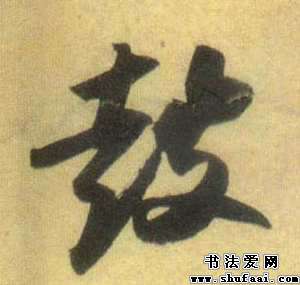 鼓
书法爱网
www.shufaai.com